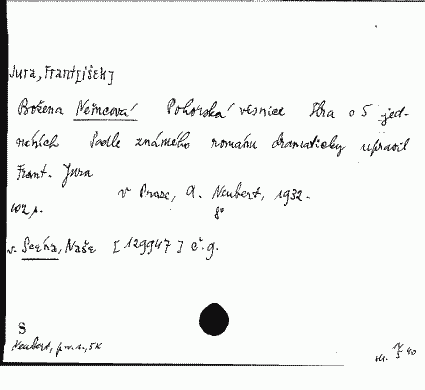 Jura, Frant[išek]
Božena Němcová Pohorská vesnice Hra o 5 jed-
náních Podle známého románu dramaticky upravil
Frant. Jura
v Praze, A. Neubert, 1932.
102 s. 8°
v. Scena, Naše [129947] č. 9.
S
Neubert, 5K
40